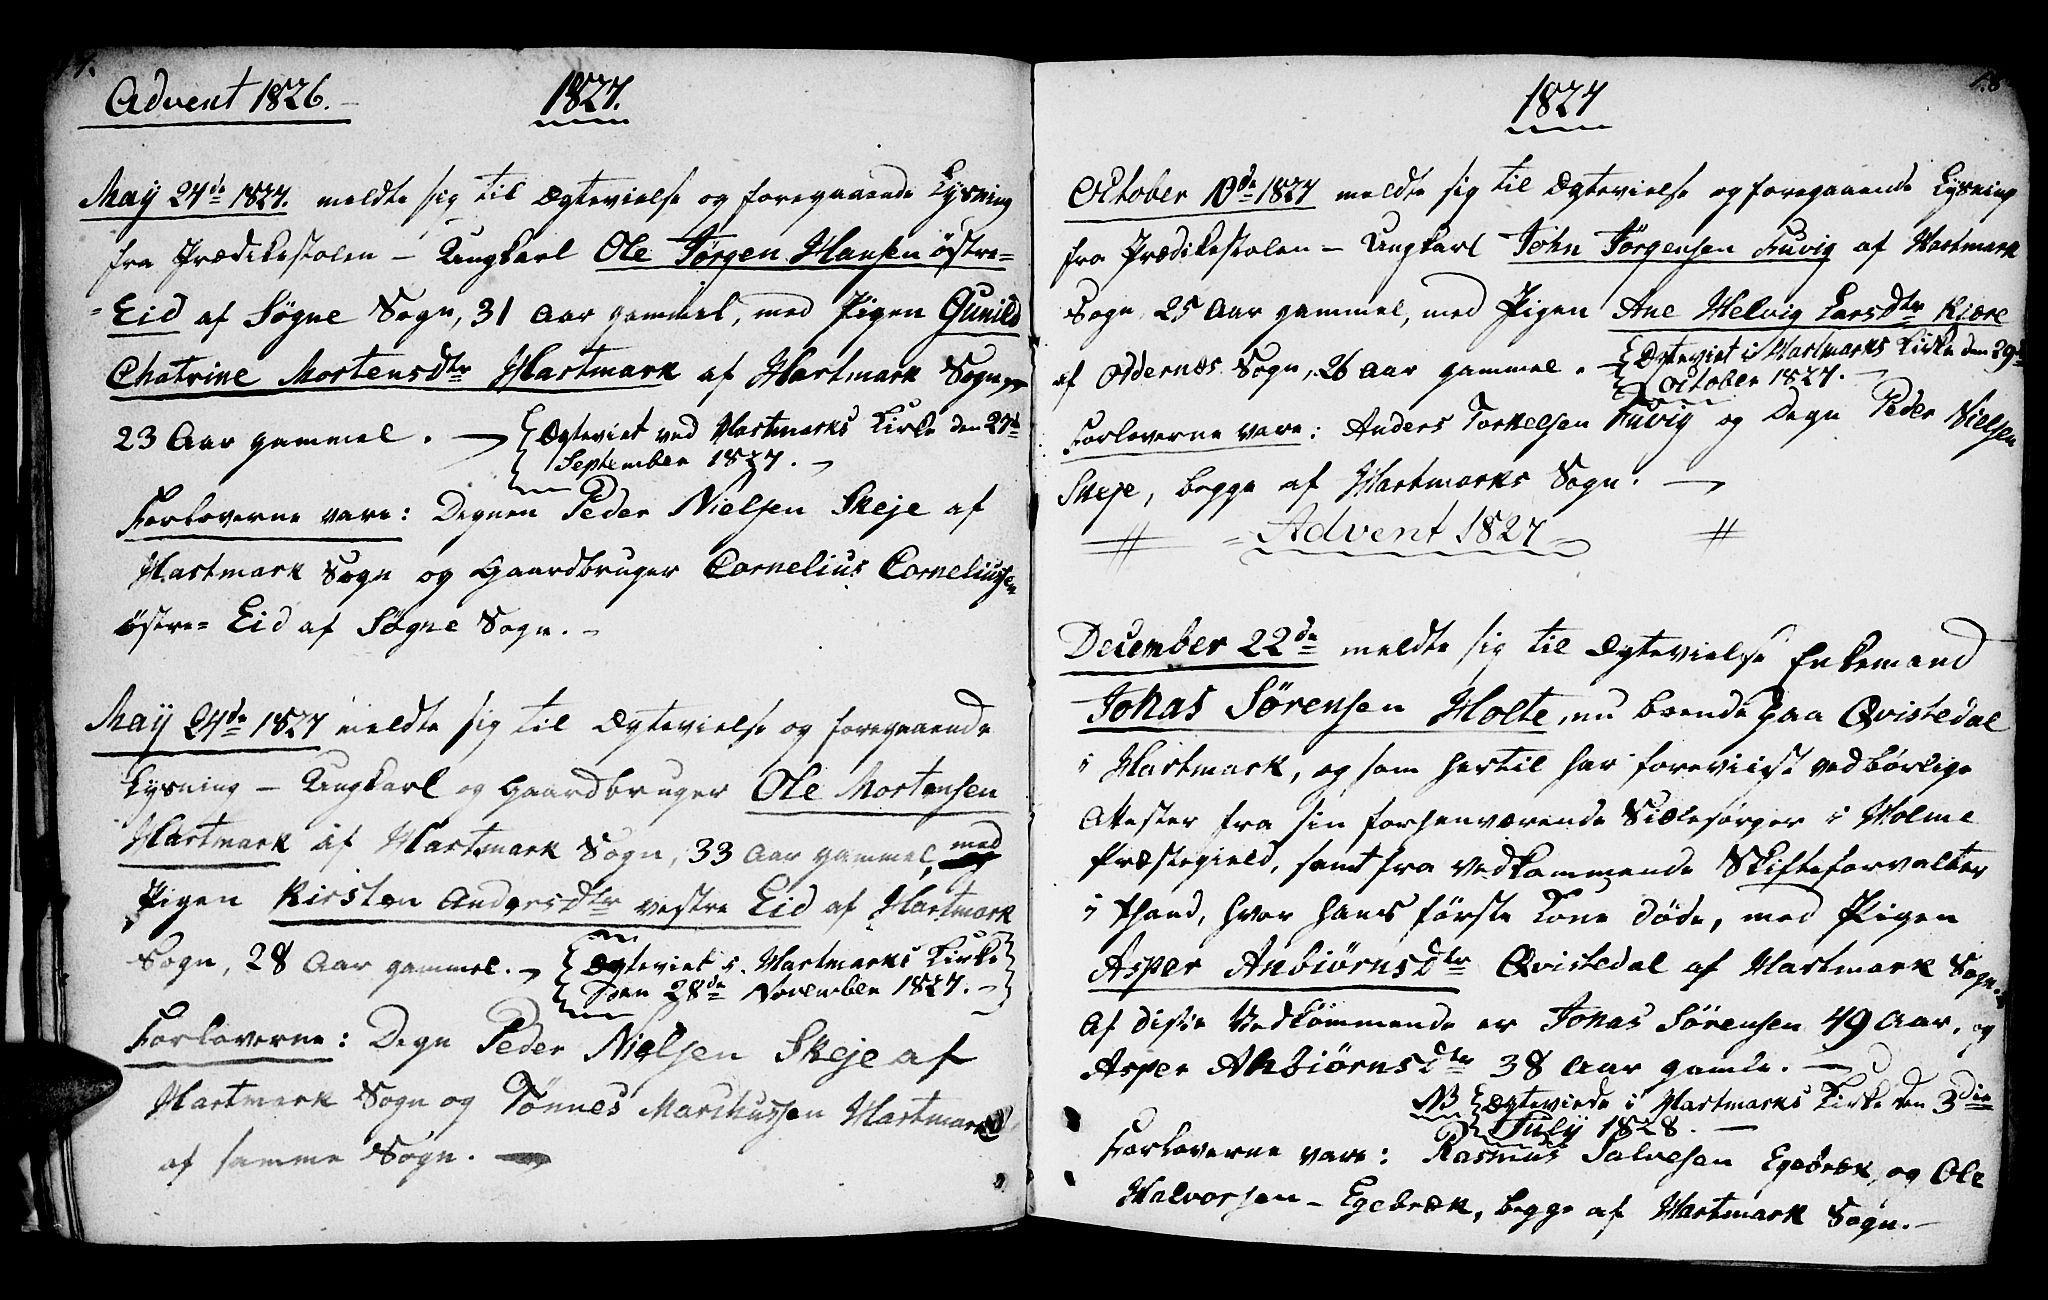 17.
Advent 1826. –
1827.
May 24de 1827. meldte sig til Egtevielse og foregaaende Lysning
fra Prædikestolen – Ungkarl Ole Jørgen Hansen östre=
=Eid af Søgne Sogn, 31 Aar gammel, med Pigen Gunild
Chatrine Mortensdtr Hartmark af Hartmark Sogn,
23 Aar gammel. – Egteviet ved Hartmarks Kirke den 27de
September 1827. –
Forloverne vare: Degnen Peder Nielsen Skeje af
Hartmark Sogn og Gaardbruger Cornelius Corneliussen
östre= Eid af Søgne Sogn. –
May 24de 1827 meldte sig til Egtevielse og foregaaende
Lysning – Ungkarl og Gaardbruger Ole Mortensen
Hartmark af Hartmark Sogn, 33 Aar gammel, med
Pigen Kirsten Andersdtr vestre Eid af Hartmark
Sogn, 28 Aar gammel. – Egteviet i Hartmarks Kirke
den 28de November 1827. –
Forloverne: Degn Peder Nielsen Skeje af
Hartmark Sogn og Tönnes Marchussen Hartmark
af samme Sogn. –
18
1827
October 10de 1827 meldte sig til Egtevielse og foregaaende Lysning
fra Prædikestolen – Ungkarl John Jörgensen Fuvig af Hartmark
Sogn, 25 Aar gammel, med Pigen Ane Helvig Larsdtr Kjære
af Oddernæs Sogn, 26 Aar gammel. – Egteviet i Hartmarks Kirke den 29de
October 1827. –
Forloverne vare: Anders Torkelsen Fuvig og Degn Peder Nielsen
Skeje, begge af Hartmarks Sogn. –
Advent 1827
December 22de meldte sig til Egtevielse Enkemand
Jonas Sörensen Holte, nu boende paa Qvistedal
i Hartmark, og som hertil har foreviist vedbørlige
Attester fra sin forhenværende Siælesørger i Holme
Præstegield, samt fra Vedkommende Skifteforvalter
i Thand, hvor hans første Kone døde, med Pigen
Asper Anbiørnsdtr Qvistedal af Hartmark Sogn. –
Af disse Vedkommende er Jonas Sörensen 49 Aar, og
Asper Anbiørnsdtr 38 Aar gamle. –
NB Egteviede i Hartmarks Kirke den 3die
July 1828. –
Forloverne vare: Rasmus Salvesen Egebræk, og Ole
Halvorsen – Egebræk, begge af Hartmark Sogn. –